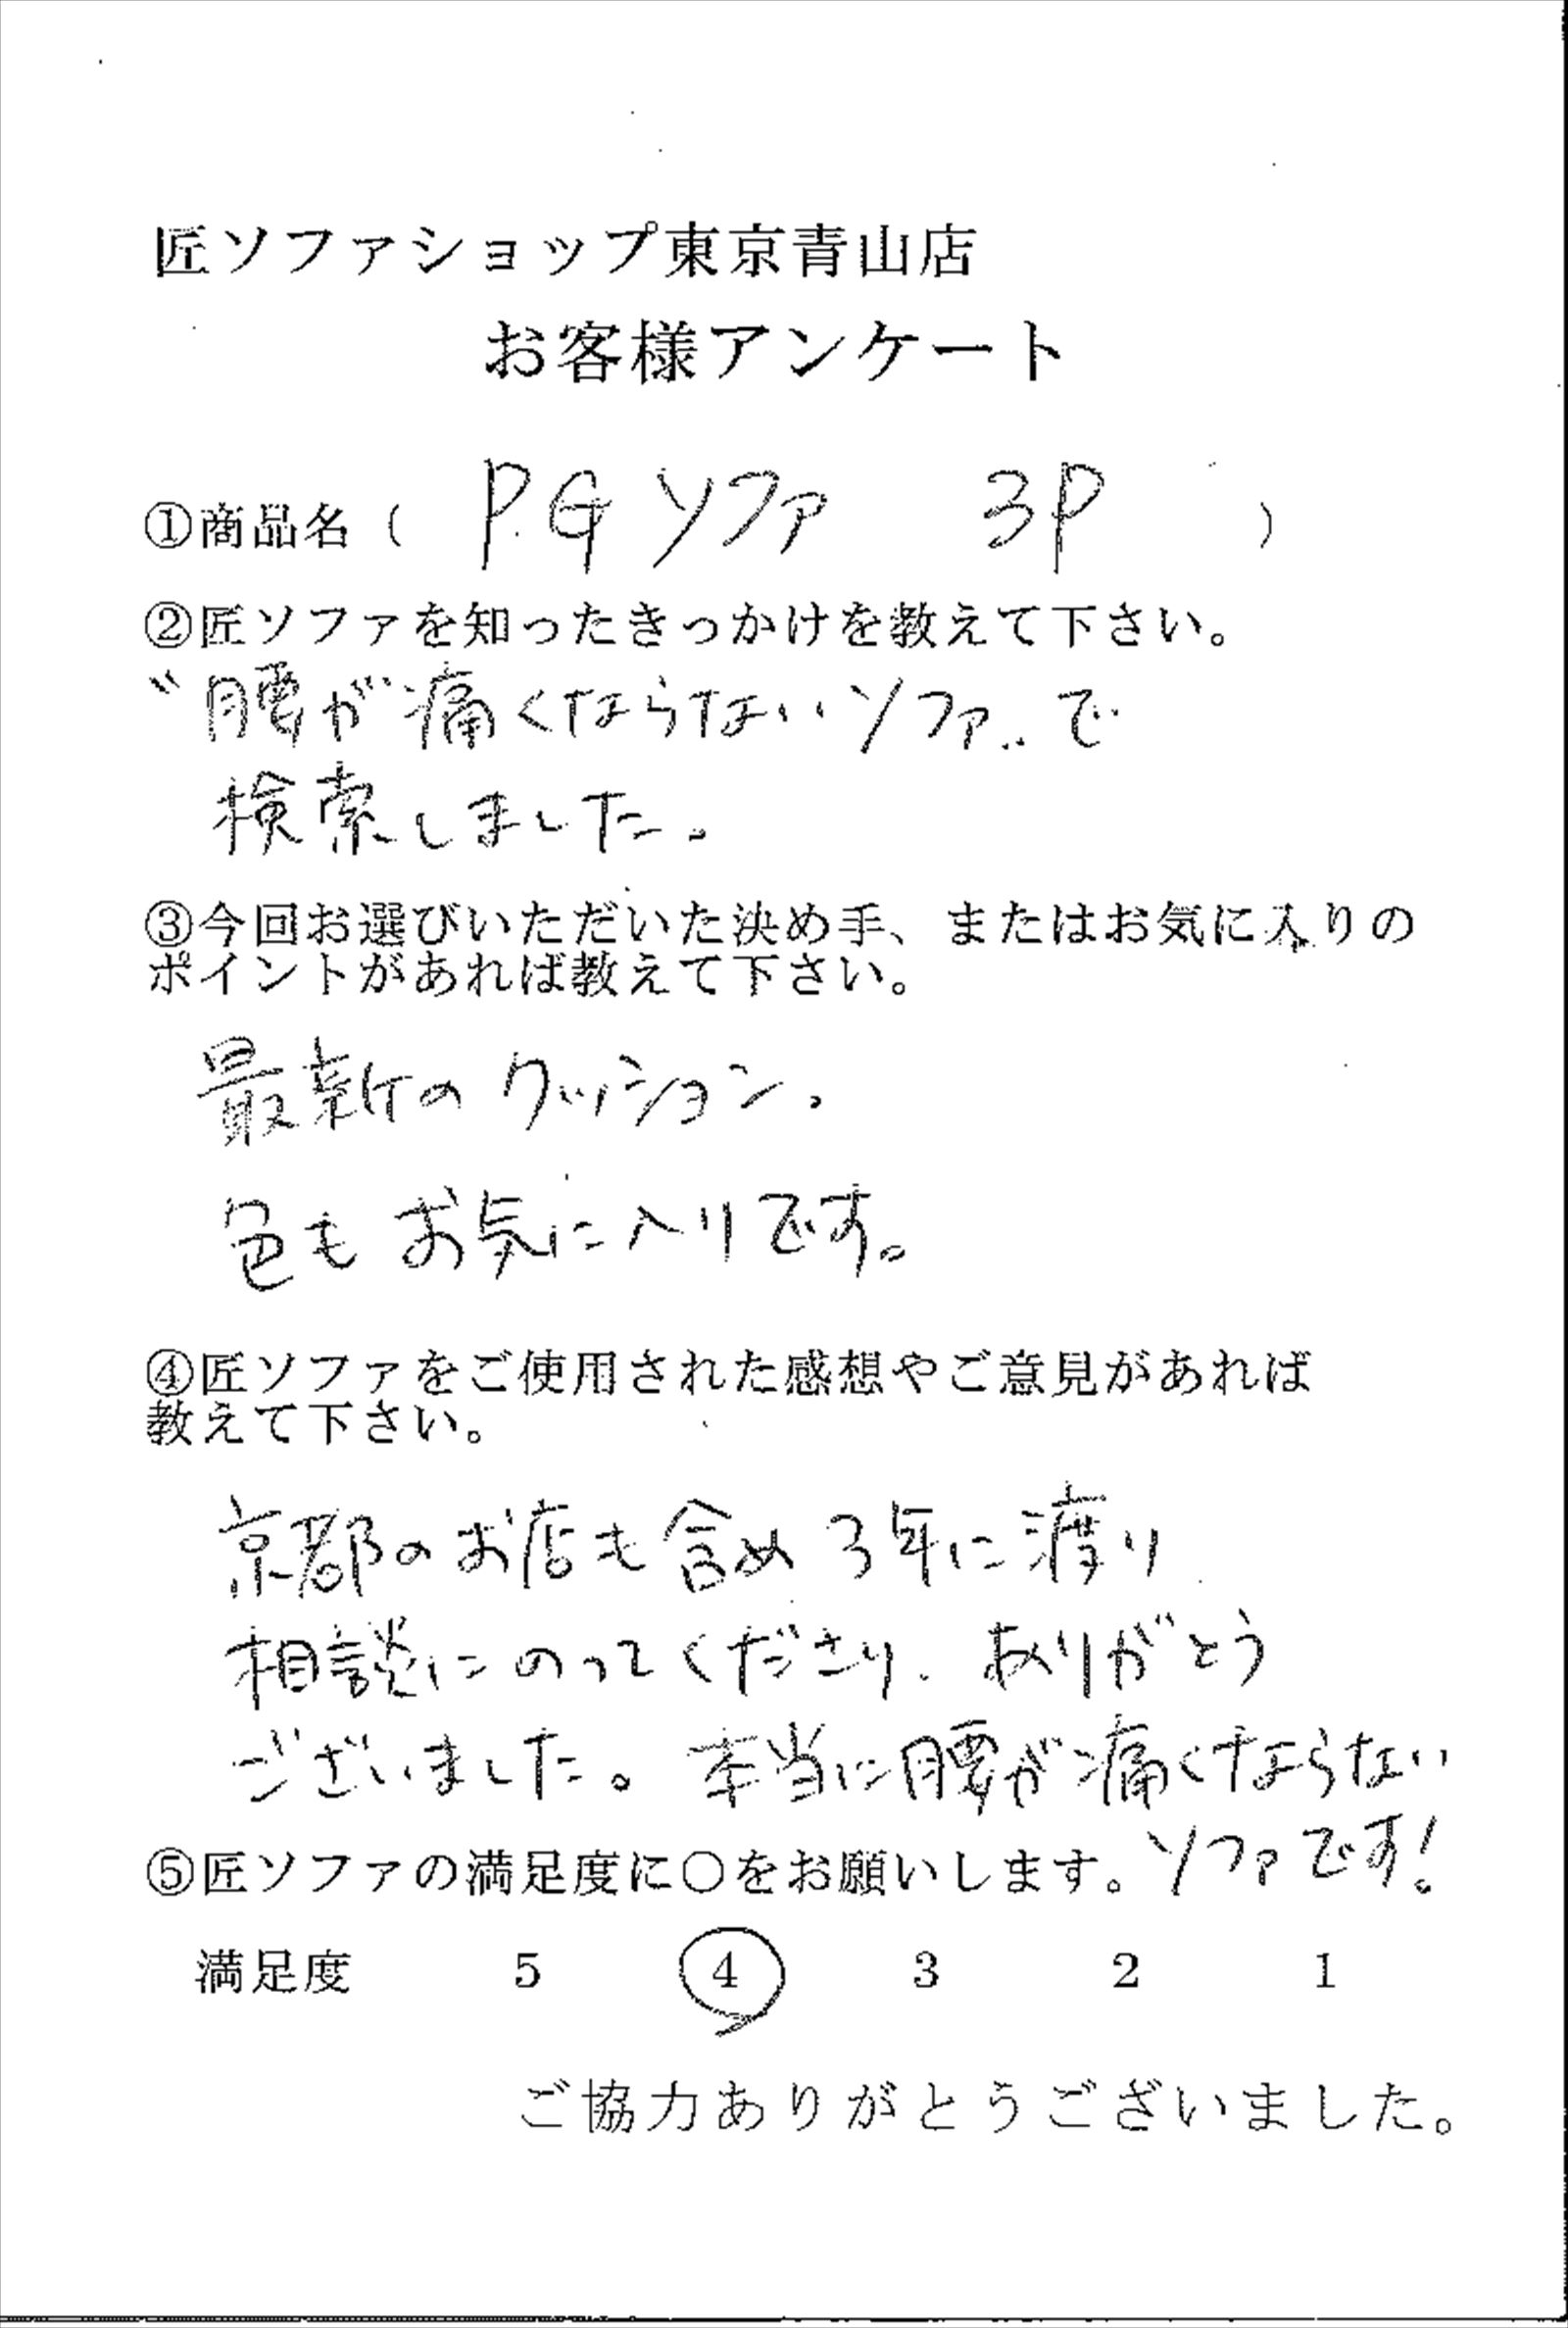 匠ソファショップ東京青山店
お客様アンケート
①商品名( PGソファ 3P )
②匠ソファを知ったきっかけを教えて下さい。
〝腰が痛くならないソファ〟で
検索しました。
③今回お選びいただいた決め手、またはお気に入りの
ポイントがあれば教えて下さい。
最新のクッション。
色もお気に入りです。
④匠ソファをご使用された感想やご意見があれば
教えて下さい。
京都のお店も含め3年に渡り
相談にのってくださり、ありがとう
ございました。本当に腰が痛くならない
ソファです!
⑤匠ソファの満足度に○をお願いします。
満足度 5 4 3 2 1
ご協力ありがとうございました。